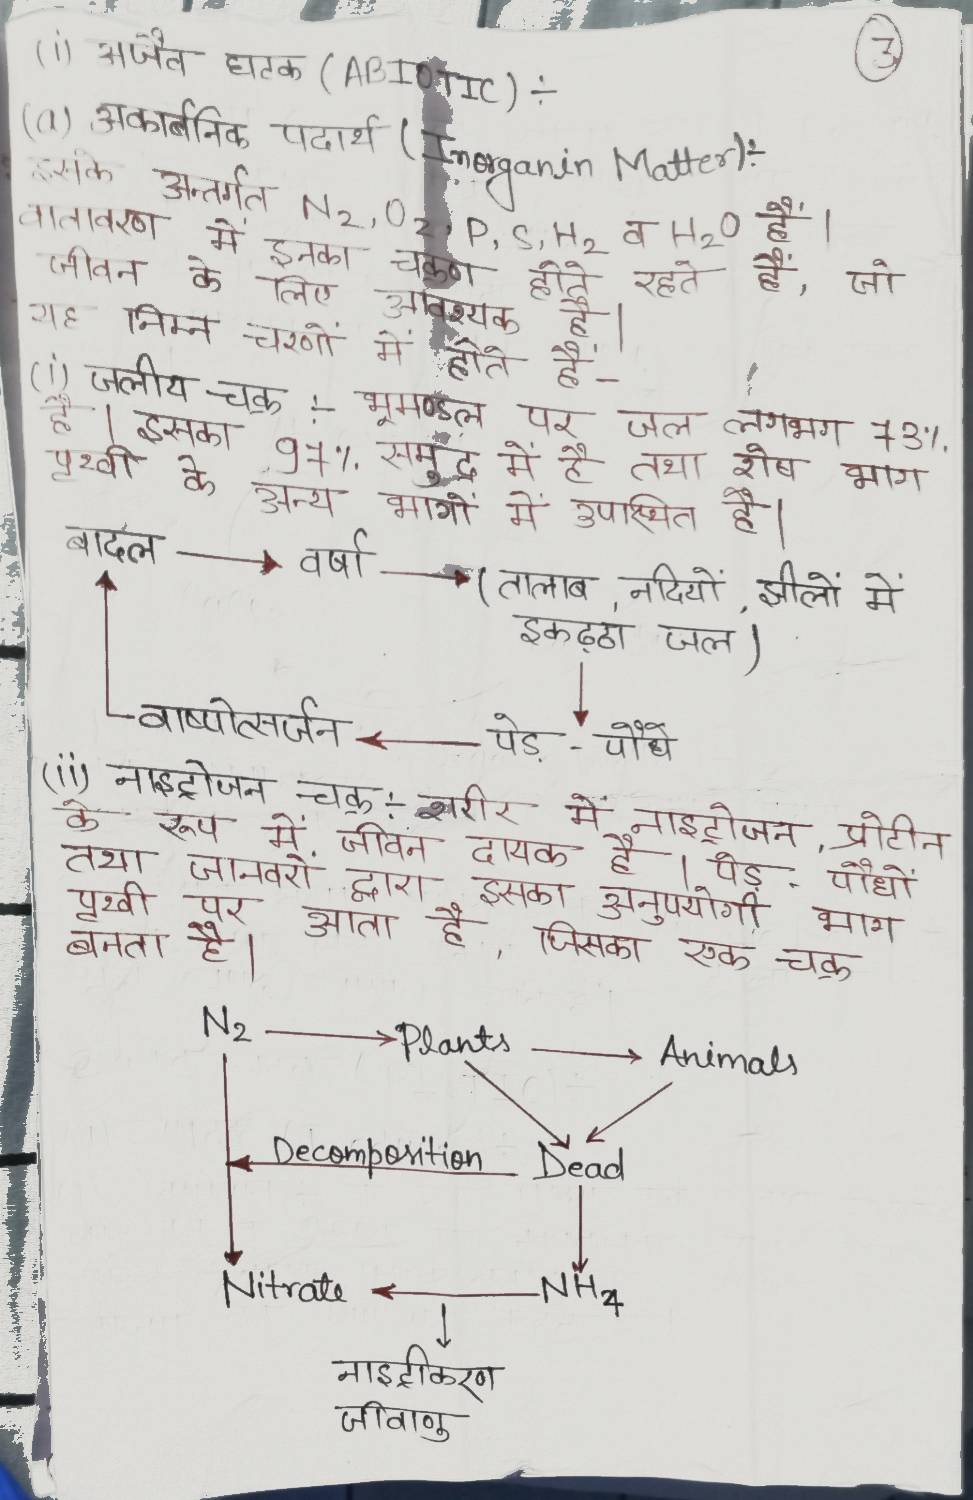 3
(i) अजैव घटक (ABIOTIC) ÷
(a) अकार्बनिक पदार्थ (Inorganin Matter)÷
इसके अन्तर्गत N2, O2, P, S, H2 व H2O हैं।
वातावरण में इनका चक्रण होते रहते हैं, जो
जीवन के लिए आवश्यक है।
यह निम्न चरणों में होते हैं-
(i) जलीय चक्र ÷ भूमण्डल पर जल लगभग 73%
है। इसका 97% समुद्र में है तथा शेष भाग
पृथ्वी के अन्य भागों में उपस्थित है।
बादल → वर्षा → (तालाब, नदियों, झीलों में
इकढ्ठा जल)
वाष्पोत्सर्जन ← पेड़ - पौधे
(ii) नाइट्रोजन चक्र ÷ शरीर में नाइट्रोजन, प्रोटीन
के रूप में जीवन दायक है। पेड़ - पौधों
तथा जानवरों द्वारा इसका अनुपयोगी भाग
पृथ्वी पर आता है, जिसका एक चक्र
बनता है।
N2 → Plants → Animals
Decomposition Dead
Nitrate ← NH4
नाइट्रीकरण
जीवाणु